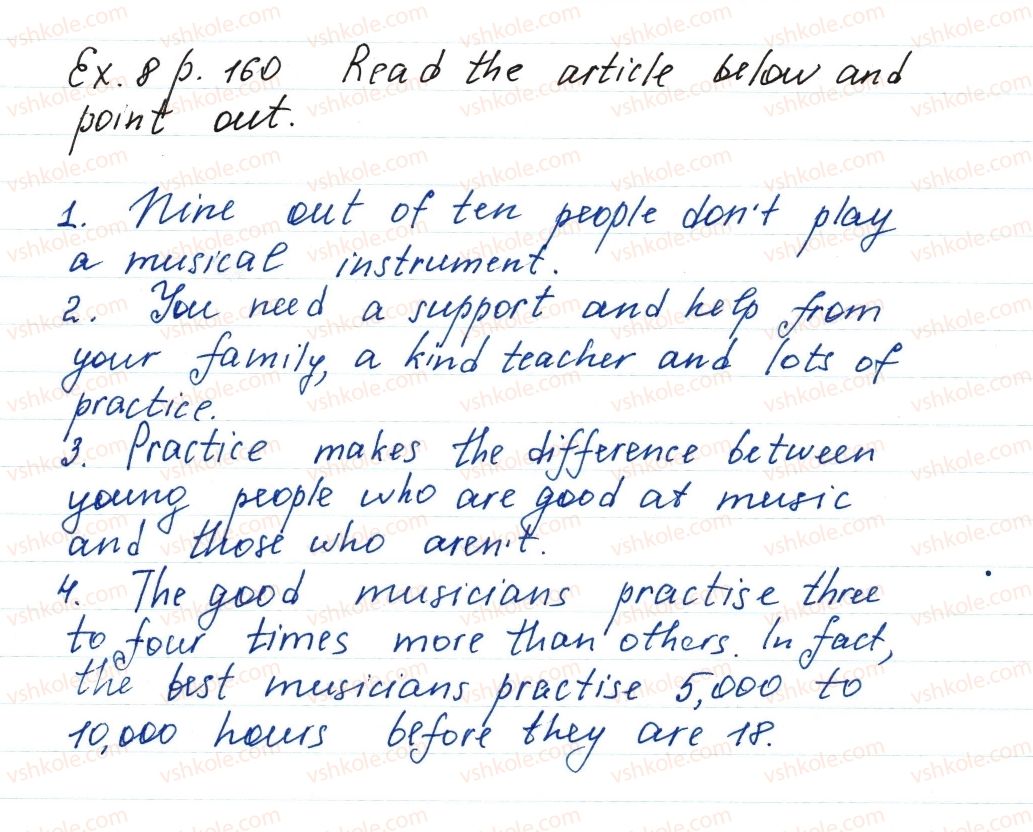 Ex. 8 p. 160 Read the article below and
point out.
1. Nine out of ten people don't play
a musical instrument.
2. You need a support and help from
your family, a kind teacher and lots of
practice.
3. Practice makes the difference between
young people who are good at music
and those who aren't.
4. The good musicians practise three
to four times more than others. In fact,
the best musicians practise 5,000 to
10,000 hours before they are 18.